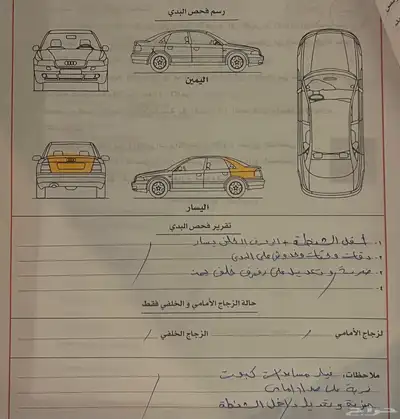 رسم فحص البدي
اليمين
اليسار
تقرير فحص البدي
١. أسفل الشنطة + الرفرف الخلفي يسار
٢. دقات وحتات وخدوش على البدي
٣. ضربة وتعديل على رفرف خلفي يمين
٤.
حالة الزجاج الأمامي و الخلفي فقط
لزجاج الأمامي / الزجاج الخلفي /
ملاحظات: غيار مساعدات كبوت
ضربة على صدام امامي
ضربة وتعديل داخل الشنطة
حراج